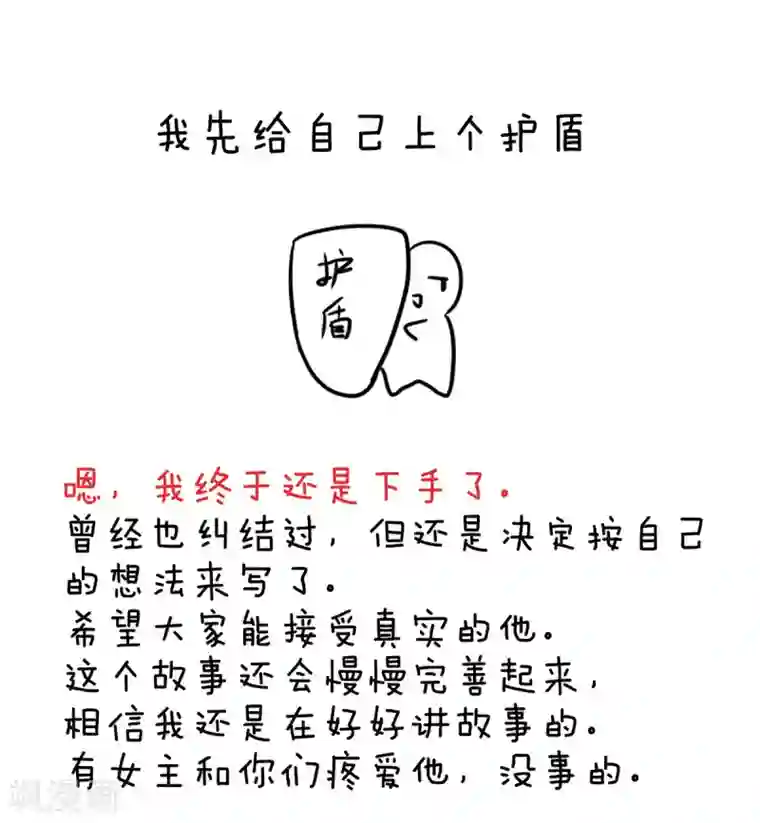 我先给自己上个护盾
护
盾
嗯，我终于还是下手了。
曾经也纠结过，但还是决定按自己
的想法来写了。
希望大家能接受真实的他。
这个故事还会慢慢完善起来，
相信我还是在好好讲故事的。
有女主和你们疼爱他，没事的。